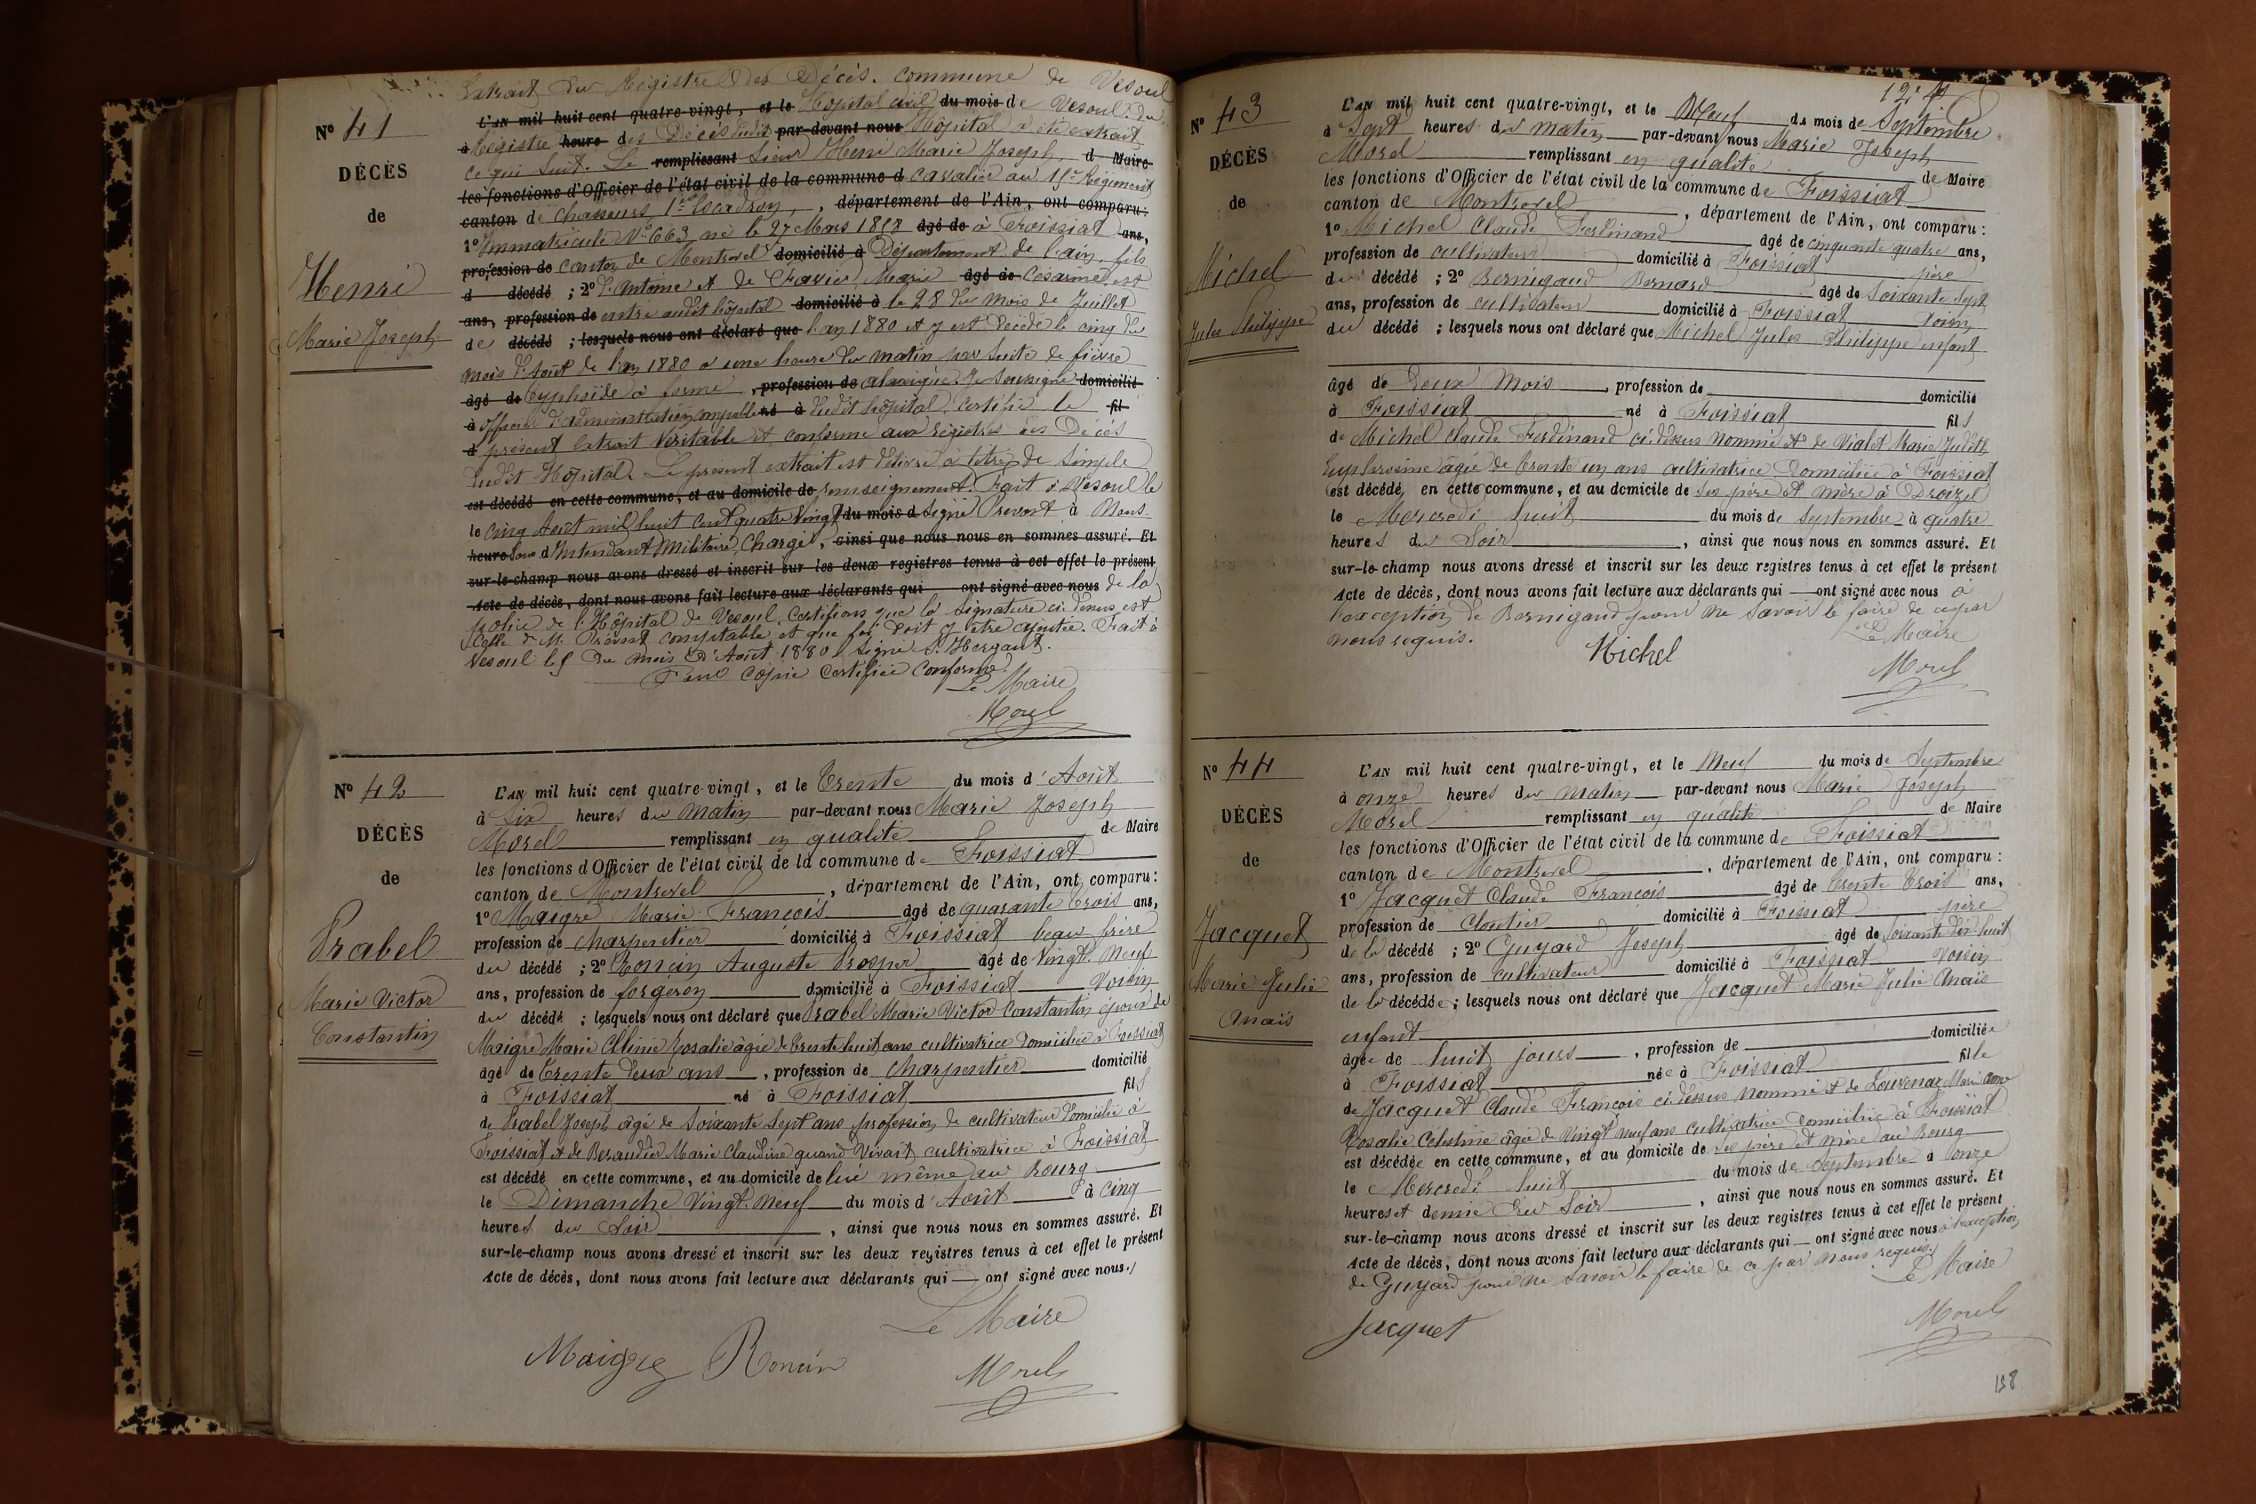 Extrait du Registre des Décès. Commune de Vesoul
L'AN mil huit cent quatre-vingt, et le Hôpital civil du mois de Vesoul. du
N° 41
à Registre heure des Décès dudit par-devant nous Hôpital a été extrait
ce qui suit. Le remplissant Sieur Henri Marie Joseph, d Maire
DÉCÈS
les fonctions d'Officier de l'état civil de la commune d cavalier au Régiment
canton de chasseurs, 1er Escadron, , département de l'Ain, ont comparu:
de
1° Immatricule N° 663 né le 27 Mars 18 âgé de à Froissiat ans,
profession de canton de Montrevel domicilié à Département de l'ain, fils
Henri
d décédé ; 2° d'Antoine et de Marie âgé de Césarine est
ans, profession de entré audit hôpital domicilié à le 28 du mois de Juillet
Marie Joseph
de décédé ; lesquels nous ont déclaré que l'an 1880 et y est décédé le cinq du
mois d'Août de l'an 1880 à une heure du matin par suite de fièvre
âgé de typhoïde à forme , profession de Je soussigné domicilié
à officier d'administration comptable né à dudit hôpital, certifie le fil
d présent extrait véritable et conforme aux registres des Décès
dudit Hôpital. Le présent extrait est délivré à titre de simple
est décédé en cette commune, et au domicile de renseignement. Fait à Vesoul le
le cinq Août mil huit cent quatre vingt du mois d Signé Prevont à Nous
heure Sous d'Intendant Militaire, Chargé, ainsi que nous nous en sommes assuré. Et
sur-le-champ nous avons dressé et inscrit sur les deux registres tenus à cet effet le présent
Acte de décès, dont nous avons fait lecture aux déclarants qui ont signé avec nous de la
police de l'Hôpital de Vesoul, Certifions que la signature ci dessus est
Celle de M. comptable et que foi doit y être ajoutée. Fait à
Vesoul le 5 du mois d'Août 1880 Signé
Pour copie certifiée conforme
Le Maire
Morel
N° 42
L'AN mil huit cent quatre-vingt, et le Trente du mois d'Août
à Six heures du matin par-devant nous Marie Joseph
DÉCÈS
Morel remplissant en qualité de Maire
les fonctions d'Officier de l'état civil de la commune de Foissiat
de
canton de Montrevel , département de l'Ain, ont comparu:
1° Maigre Marie François âgé de quarante trois ans,
Prabel
profession de charpentier domicilié à Foissiat beau frère
du décédé ; 2° Roncin Auguste Prosper âgé de Vingt Neuf
Marie Victor
ans, profession de forgeron domicilié à Foissiat Voisin
Constantin
du décédé ; lesquels nous ont déclaré que Prabel Marie Victor Constantin époux de
Maigre Marie Célinie Rosalie âgée de trente huit ans cultivatrice domiciliée à Foissiat
âgé de trente deux ans , profession de charpentier domicilié
à Foissiat né à Foissiat fils
de Prabel Joseph âgé de Soixante sept ans profession de cultivateur domicilié à
Foissiat et de Beraudier Marie Claudine quand vivait cultivatrice à Foissiat
est décédé en cette commune, et au domicile de lui même au Bourg
le Dimanche Vingt Neuf du mois d'Août à cinq
heures du Soir , ainsi que nous nous en sommes assuré. Et
sur-le-champ nous avons dressé et inscrit sur les deux registres tenus à cet effet le présent
Acte de décès, dont nous avons fait lecture aux déclarants qui ont signé avec nous.
Le Maire
Maigre Roncin
Morel
N° 43
L'AN mil huit cent quatre-vingt, et le Neuf du mois de Septembre
à Sept heures du matin par-devant nous Marie Joseph
DÉCÈS
Morel remplissant en qualité de Maire
les fonctions d'Officier de l'état civil de la commune de Foissiat
de
canton de Montrevel , département de l'Ain, ont comparu:
1° Michel Claude Ferdinand âgé de cinquante quatre ans,
Michel
profession de cultivateur domicilié à Foissiat père
du décédé ; 2° Bernigaud Bernard âgé de Soixante Sept
Jules Philippe
ans, profession de cultivateur domicilié à Foissiat Voisin
du décédé ; lesquels nous ont déclaré que Michel Jules Philippe enfant
âgé de Deux Mois , profession de domicilié
à Foissiat né à Foissiat fils
de Michel Claude Ferdinand ci dessus nommé et de Vialet Marie Judith
Euphrosine âgée de trente un ans cultivatrice domiciliée à Foissiat
est décédé, en cette commune, et au domicile de ses père et mère à
le Mercredi huit du mois de Septembre à quatre
heures du Soir , ainsi que nous nous en sommes assuré. Et
sur-le-champ nous avons dressé et inscrit sur les deux registres tenus à cet effet le présent
Acte de décès, dont nous avons fait lecture aux déclarants qui ont signé avec nous à
l'exception de Bernigaud pour ne savoir le faire de ce par
nous requis.
Le Maire
Michel
Morel
N° 44
L'AN mil huit cent quatre-vingt, et le Neuf du mois de Septembre
à onze heures du matin par-devant nous Marie Joseph
DÉCÈS
Morel remplissant en qualité de Maire
les fonctions d'Officier de l'état civil de la commune de Foissiat
de
canton de Montrevel , département de l'Ain, ont comparu:
1° Jacquet Claude François âgé de trente trois ans,
Jacquet
profession de cloutier domicilié à Foissiat père
de la décédé ; 2° Guyard Joseph âgé de soixante dix huit
Marie Julie
ans, profession de cultivateur domicilié à Foissiat voisin
Anaïs
de la décédée ; lesquels nous ont déclaré que Jacquet Marie Julie Anaïs
enfant
âgée de huit jours , profession de domiciliée
à Foissiat née à Foissiat fille
de Jacquet Claude François ci dessus nommé et de Marianne
Rosalie Celestine âgée de vingt neuf ans cultivatrice domiciliée à Foissiat
est décédée en cette commune, et au domicile de ses père et mère au Bourg
le Mercredi huit du mois de Septembre à onze
heures et demie du Soir , ainsi que nous nous en sommes assuré. Et
sur-le-champ nous avons dressé et inscrit sur les deux registres tenus à cet effet le présent
Acte de décès, dont nous avons fait lecture aux déclarants qui ont signé avec nous à l'exception
de Guyard pour ne savoir le faire de ce par nous requis.
Le Maire
Jacquet
Morel
138